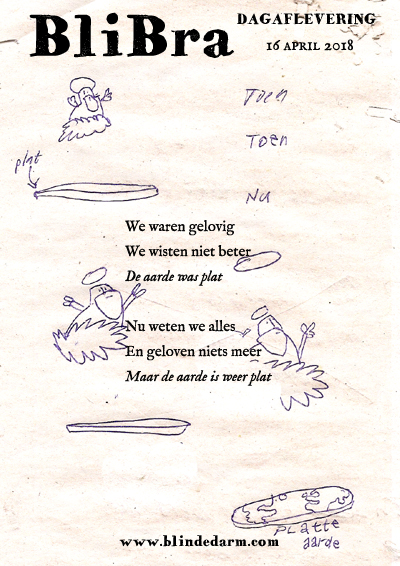 BliBra
DAGAFLEVERING
16 APRIL 2018
Toen
Toen
plat
Nu
We waren gelovig
We wisten niet beter
De aarde was plat
Nu weten we alles
En geloven niets meer
Maar de aarde is weer plat
PLATTE
aarde
www.blindedarm.com